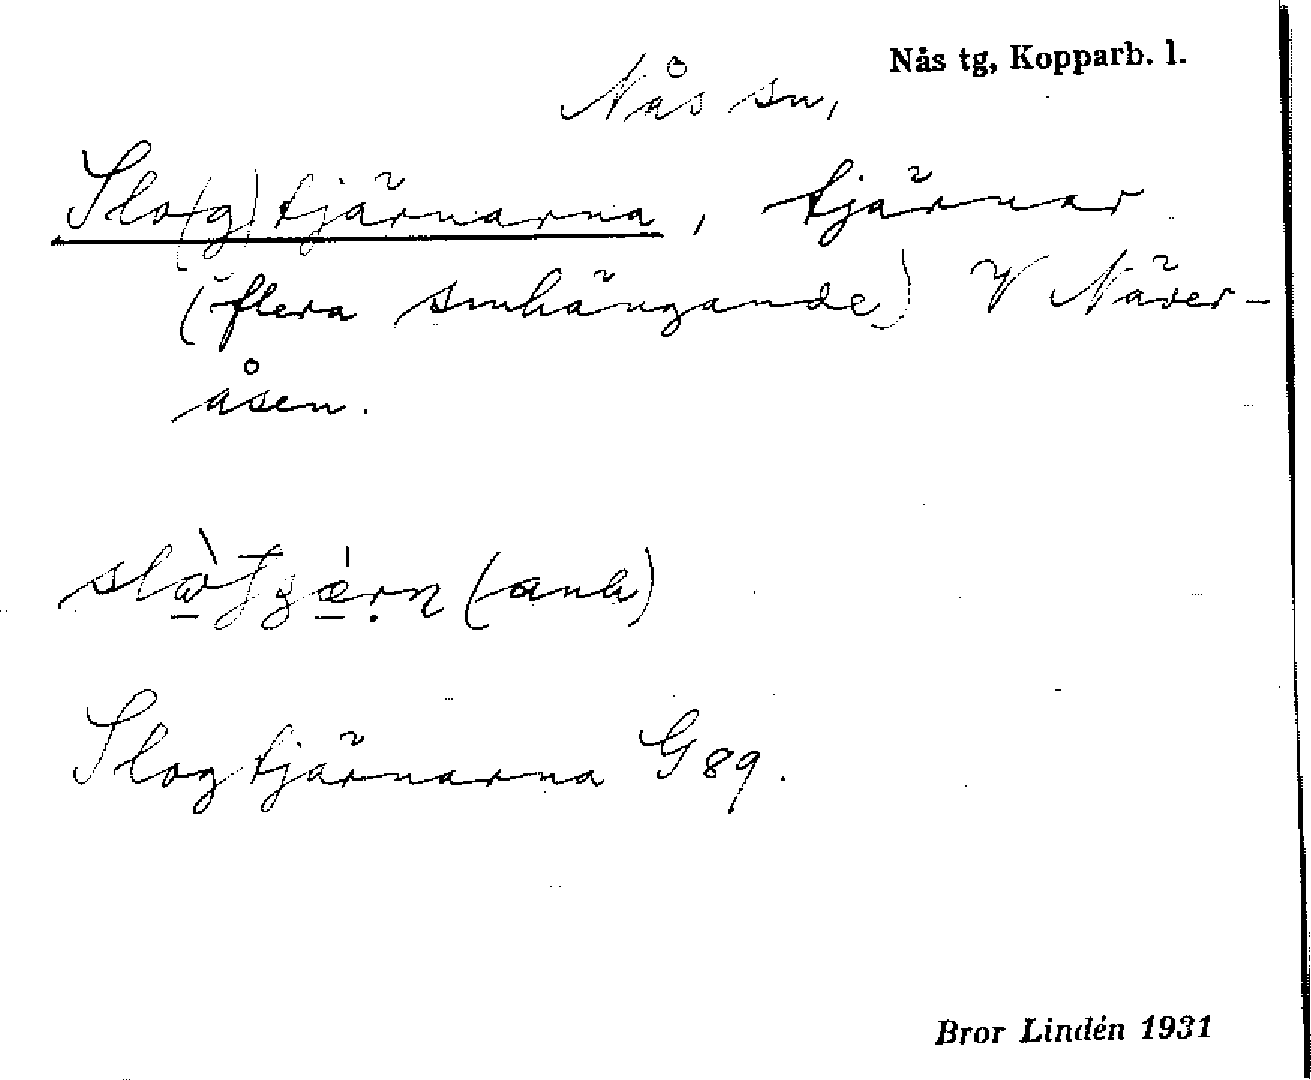 Nås tg, Kopparb. l.
Nås sn,
Slo(g)tjärnarna, tjärnar
(flera smhängande) V Näver-
åsen.
(anh)
Slogtjärnarna G 89.
Bror Lindén 1931